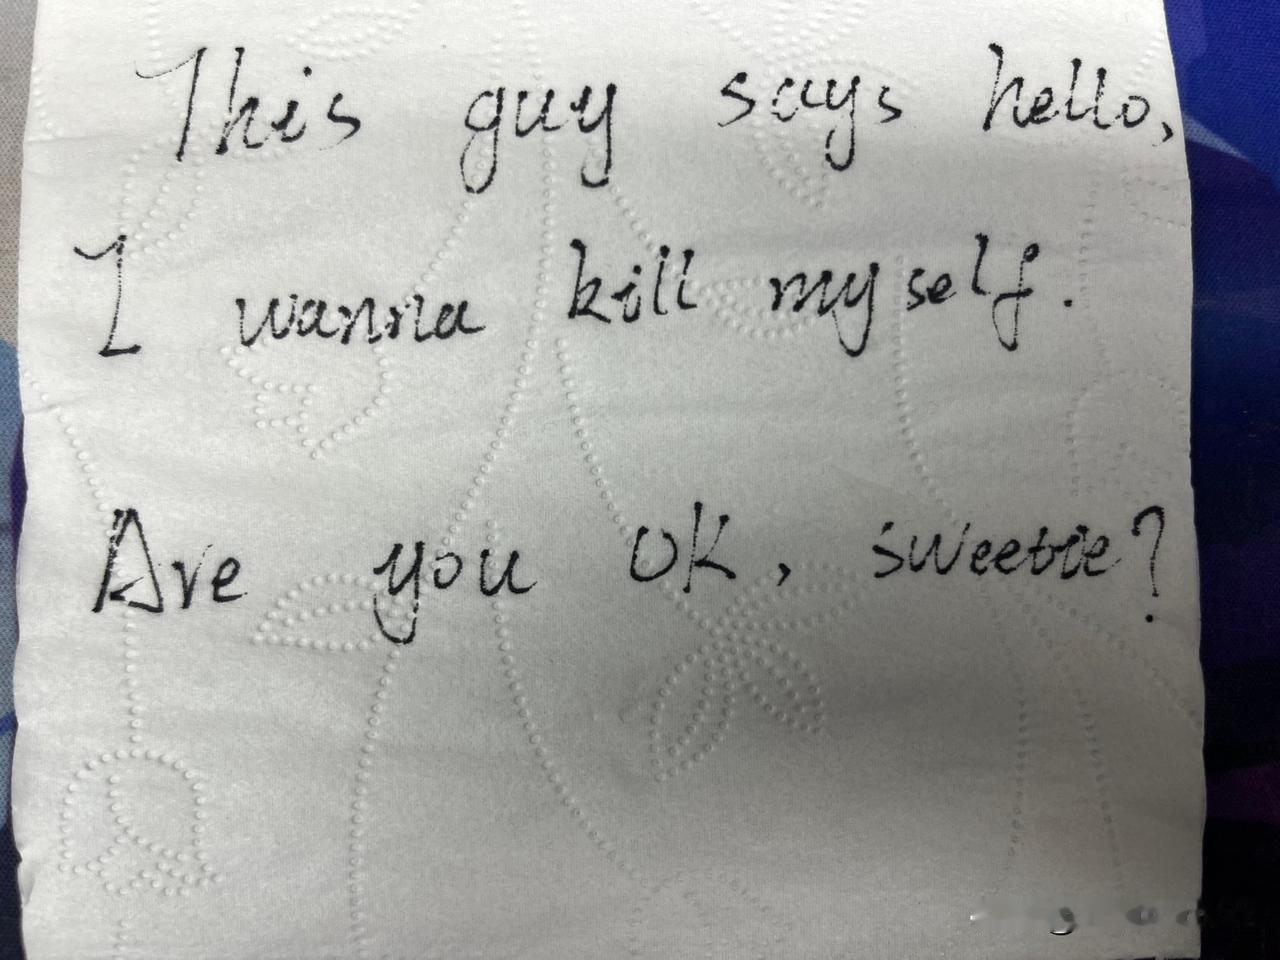 This guy says hello,
I wanna kill myself.
Are you OK, sweetie?